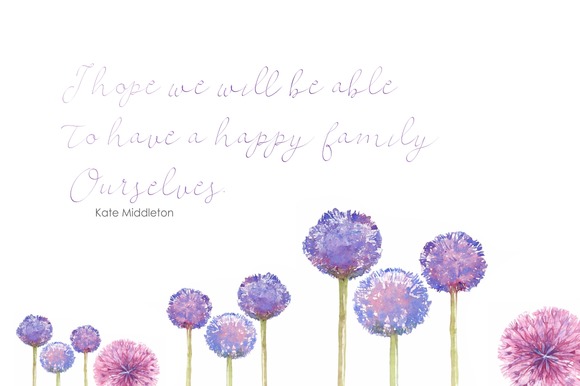 I hope we will be able
To have a happy family
Ourselves.
Kate Middleton